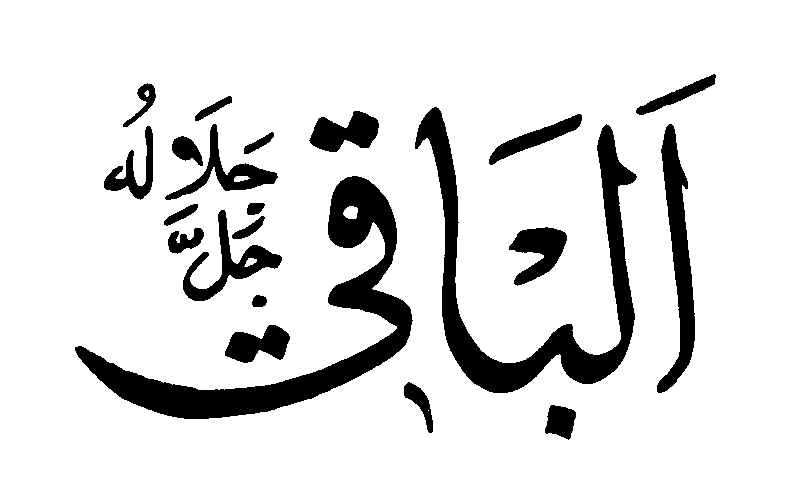 اَلْبَاقِي
جَلَّ جَلَالُهُ